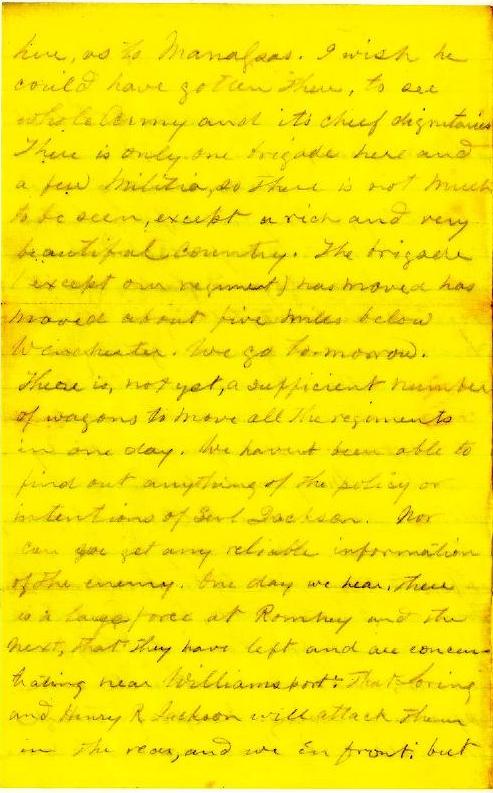 here, as to Manassas. I wish he
could have gotten there, to see
whole Army and its chief dignitaries
There is only one brigade here and
a few Militia, so there is not much
to be seen, except a rich and very
beautiful country. The brigade
(except our regiment) has moved has
moved about five miles below
Winchester. We go tomorrow.
There is, not yet, a sufficient number
of wagons to move all the regiments
in one day. We havent been able to
find out anything of the policy or
intentions of Genl Jackson. Nor
can we get any reliable information
of the enemy. One day we hear, there
is a large force at Romney and the
next, that they have left and are concen-
trating near Williamsport. That Loring
and Henry R Jackson will attack them
in the rear, and we in front. but